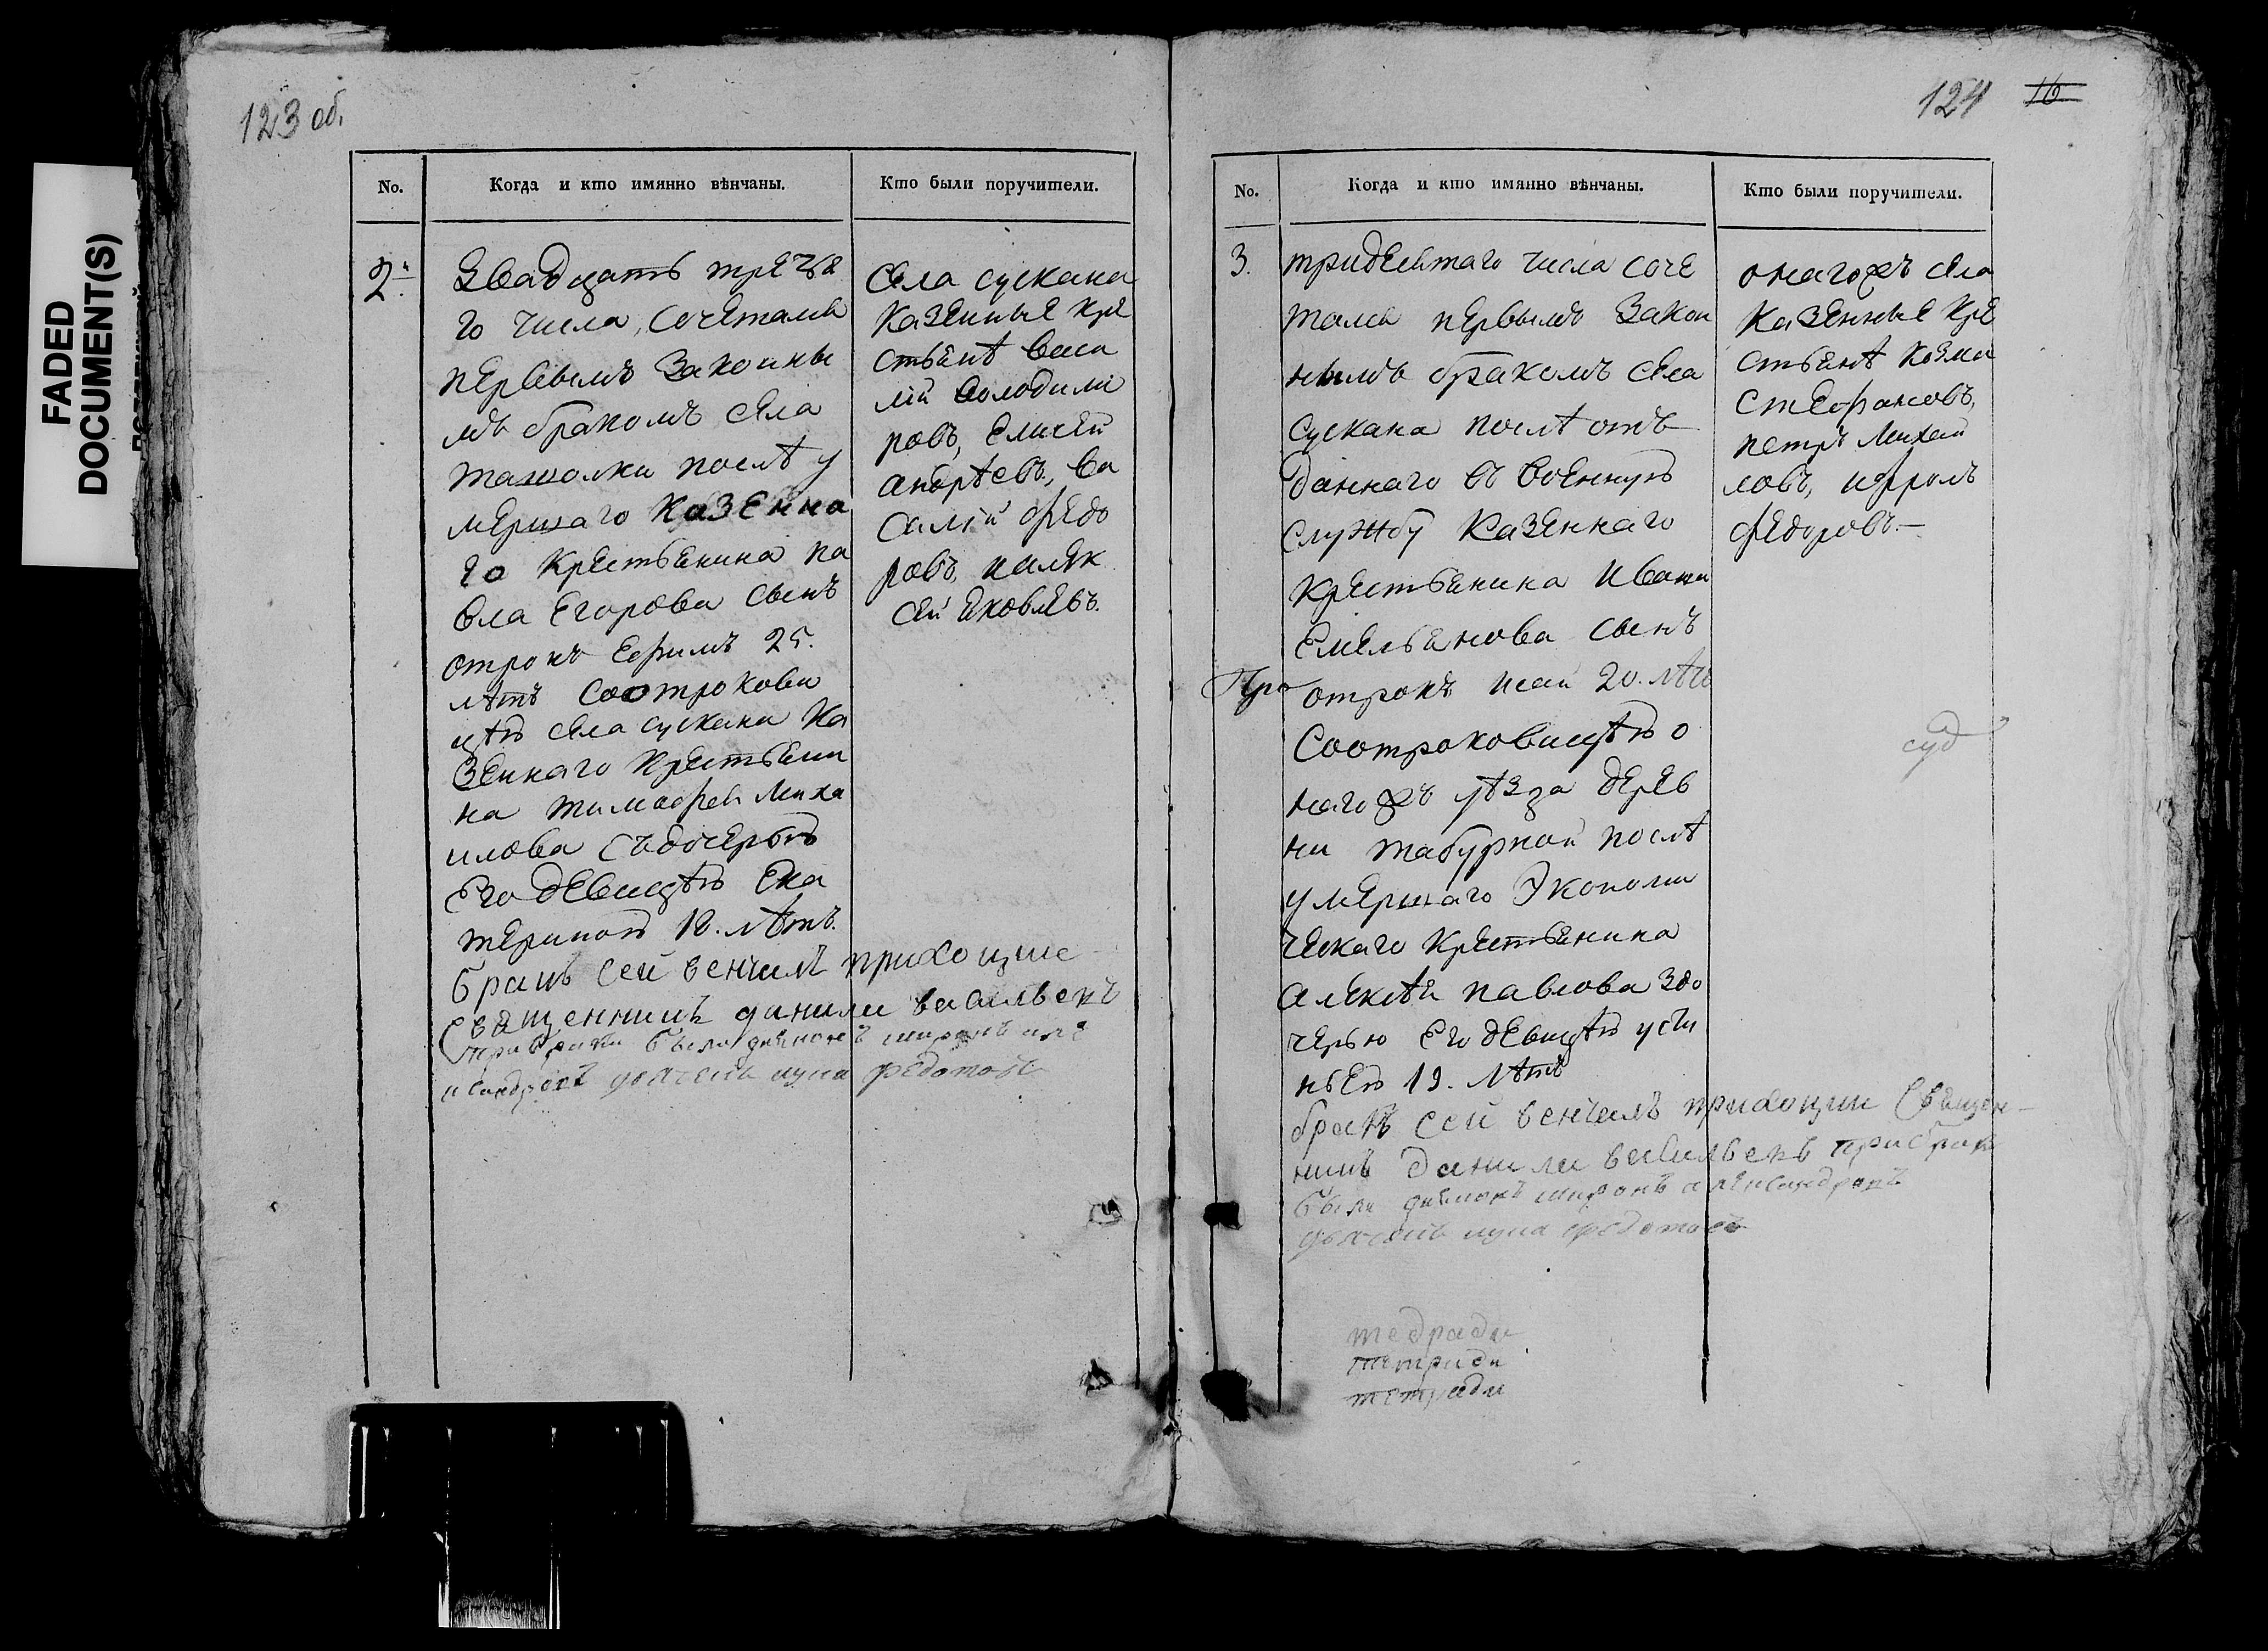 FADED
DOCUMENT(S)
123 об.
No.
Когда и кто имянно вѣнчаны.
Кто были поручители.
2.
Двадцать третья
го числа, Сочетались
первымъ Законны
мъ бракомъ села
ташолки послѣ у
мершаго Казенна
го Крестьянина па
вла Егорова сынъ
отрокъ Ефимъ 25.
лѣтъ Соотрокови
цѣю села сускана Ка
зеннаго Крестьяни
на тимофея Миха
илова съдочерью
Его девицѣю Ека
териною 18. лѣтъ.
бракъ сей венчилъ приходцкие
Священникъ данила васильевъ
села сускана
Казенные кре
стьянѣ васи
лій володими
ровъ, Елисей
андрѣевъ, ва
силій федо
ровъ, иалек
сей яковлевъ.
при браки были дьячокъ миронъ але
ксандровъ дьячекъ лука федотовъ
124 16
No.
Когда и кто имянно вѣнчаны.
Кто были поручители.
3.
тридеятаго числа соче
тались первымъ Закон
нымъ бракомъ села
Сускана послѣ отъ
даннаго въ военную
службу Казеннаго
Крестьянина Ивана
Емельянова сынъ
Про отрокъ исай 20. лѣтъ
Соотроковицѣю о
нагожъ уѣзда дерев
ни табурной послѣ
умершаго Экономи
ческаго Крестьянина
алексѣя павлова здо
черью Его девицѣю усти
ньею 19. лѣтъ
бракъ сей венчилъ приходцкии Священ-
никъ данила васильевъ при браки
были дьячокъ миронъ александровъ
дьячекъ лука федотовъ
онагожъ села
Казенные Кре
стьянѣ козма
Стефановъ,
петръ Михай
ловъ, ифролъ
федоровъ.—
суд
тедради
тетради
тетради